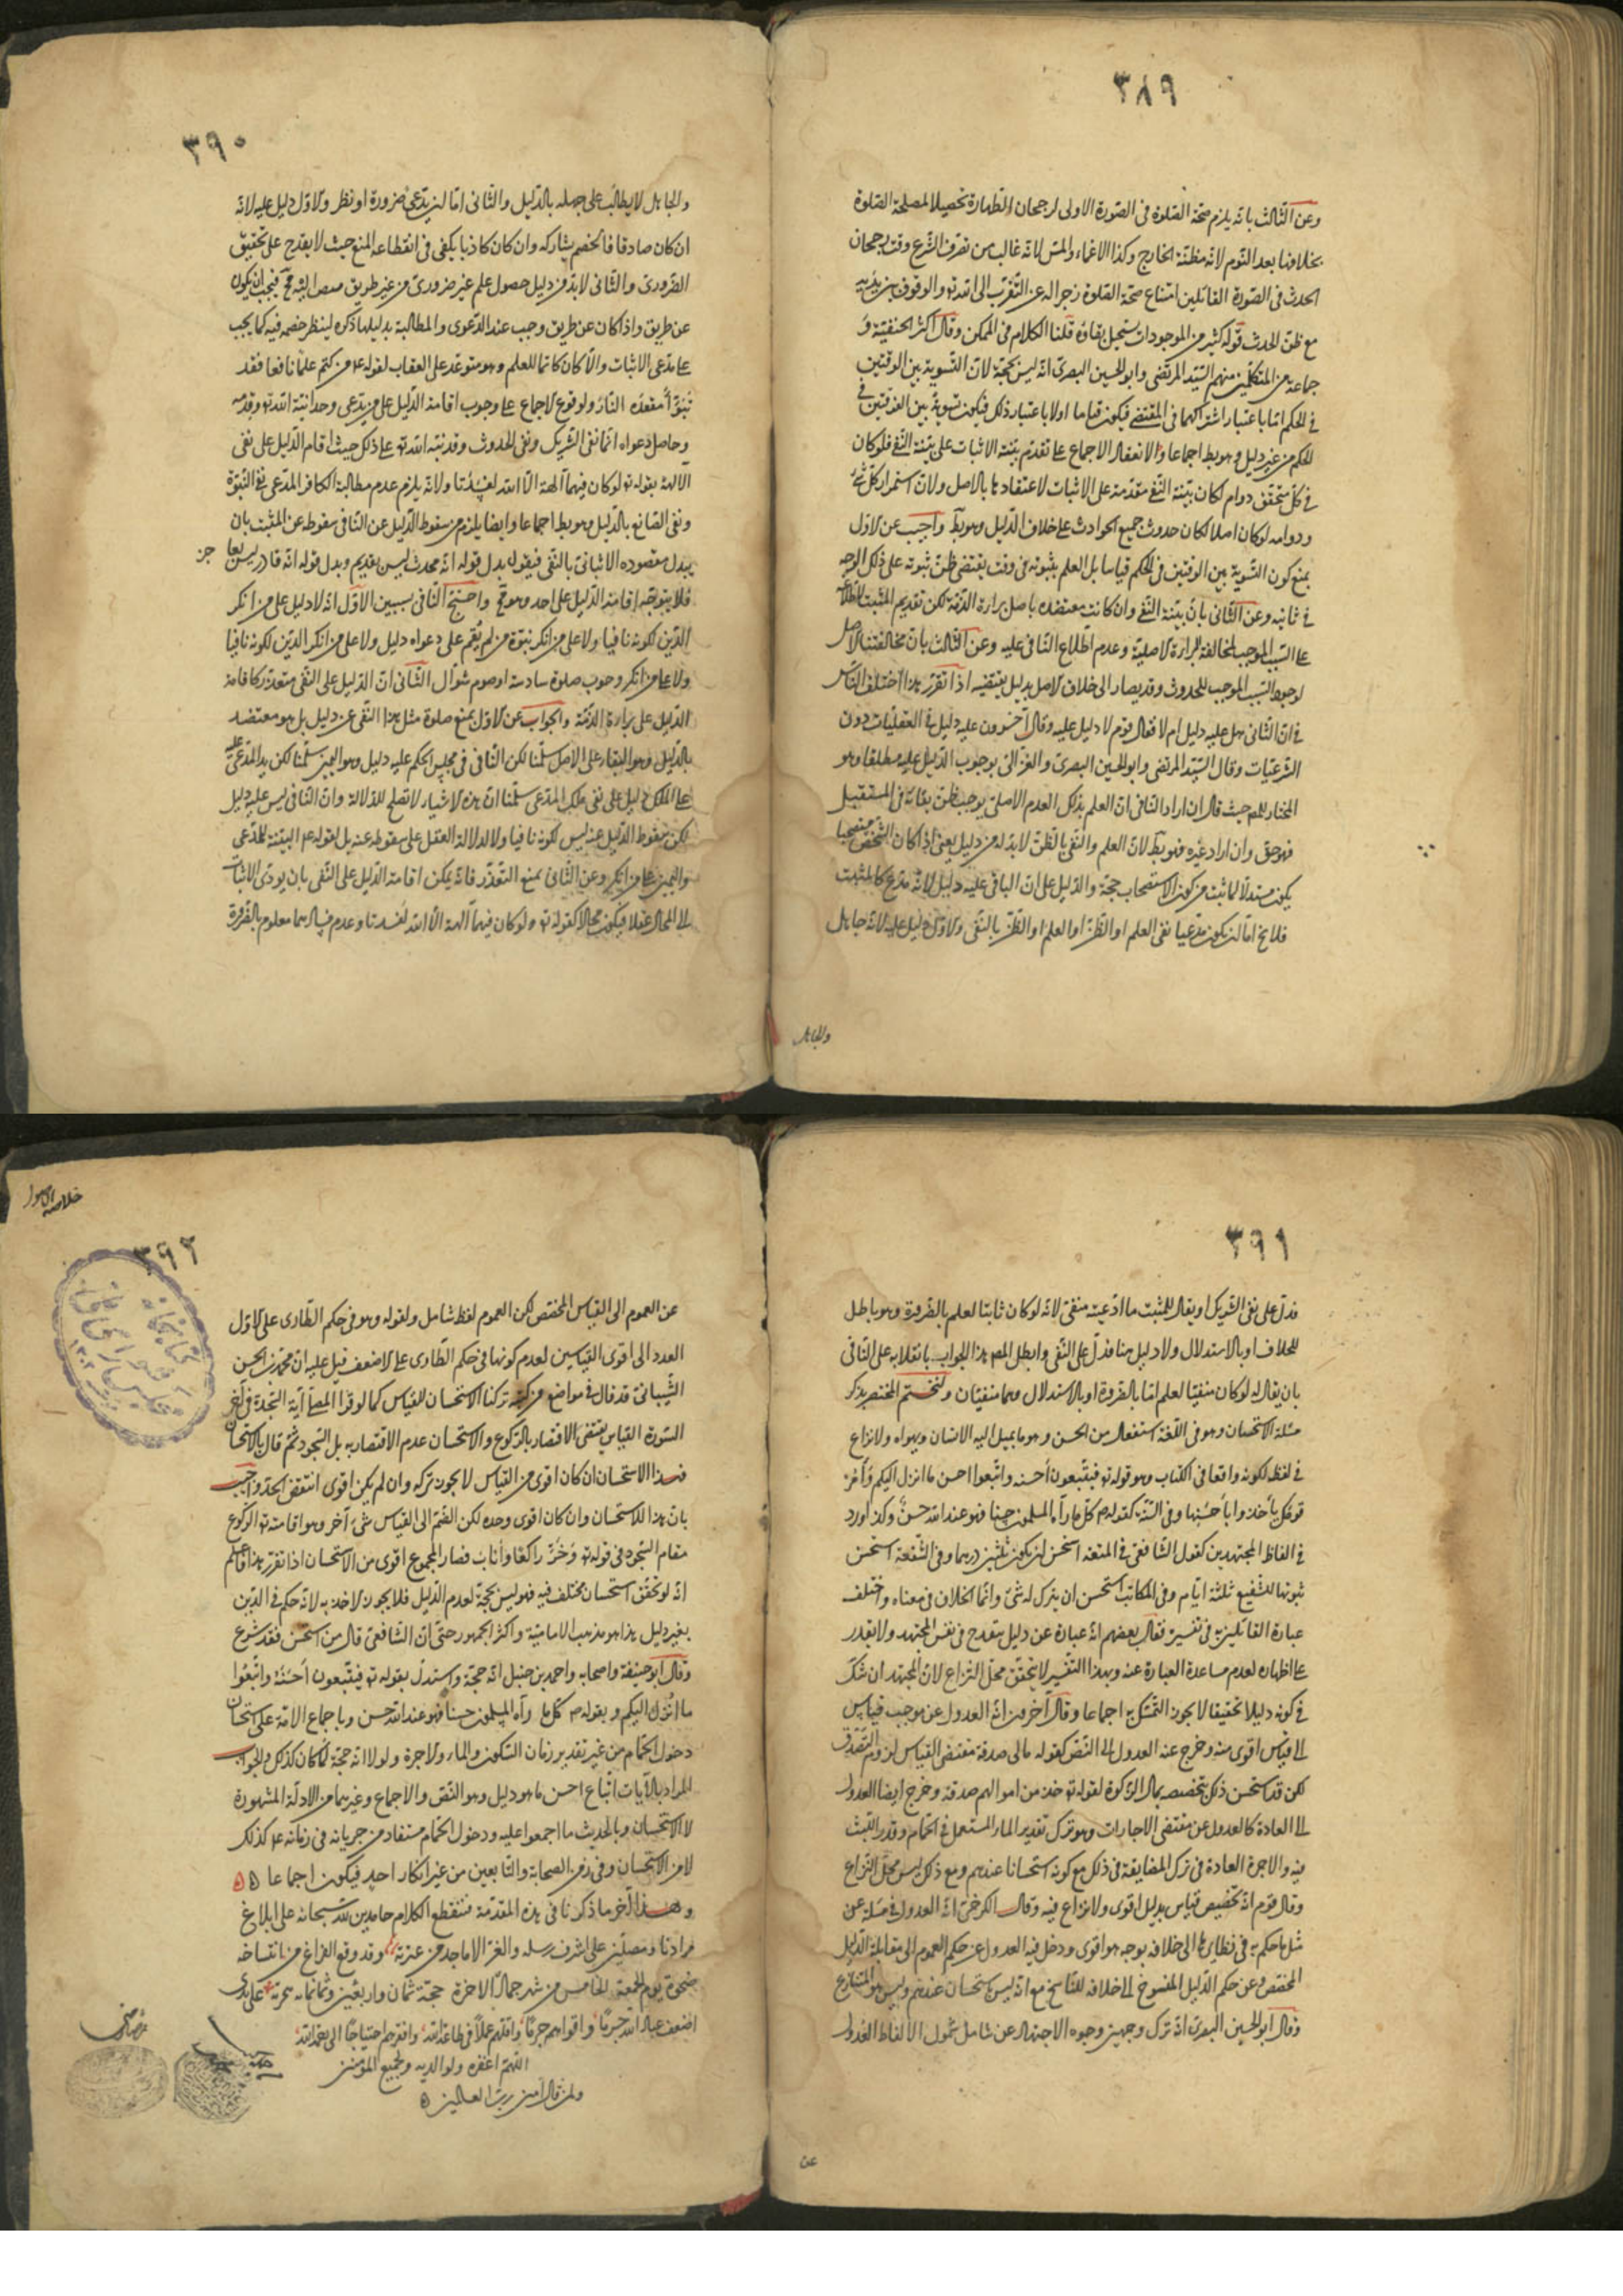 ٣٨٩
وعن الثالث بانه يلزم صحة الصلوة فى الصورة الاولى لرجحان الطهارة تحصيلا لمصلحة الصلوة
بخلافها بعد النوم لانه مظنة الخارج وكذا الاغماء والمس لانه غالب من تصرف الشرع وقت رجحان
الحدث فى الصورة القائلين امتناع صحة الصلوة زجرا له عن التقرب الى الله تع والوقوف بين يديه
مع ظن الحدث قوله كثير من الموجودات يستحيل بقاؤه قلنا الكلام فى الممكن وقال اكثر الحنفية و
جماعة من المتكلمين منهم السيد المرتضى وابو الحسين البصرى انه ليس بحجة لان التسوية بين الوقتين
فى الحكم اما باعتبار اشتراكهما فى المقتضى فيكون قياسا او لا باعتبار ذلك فيكون تسوية بين الوقتين فى
الحكم من غير دليل وهو بط اجماعا والا نعقد الاجماع على تقديم بينة الاثبات على بينة النفى فلو كان
فى كل متحقق دوام لكان بينة النفى مقدمة على الاثبات لاعتضادها بالاصل ولان استمرار كل شئ
ودوامه لو كان اصلا لكان حدوث جميع الحوادث على خلاف الدليل وهو بط واجيب عن الاول
بمنع كون التسوية بين الوقتين فى الحكم قياسا بل العلم بثبوته فى وقت يقتضى ظن ثبوته على ذلك الوجه
فى ثانيه وعن الثانى بان بينة النفى وان كانت معتضده باصل براءة الذمة لكن تقديم المثبت لاطلاعه
على السبب الموجب لمخالفة البراءة الاصلية وعدم اطلاع النافى عليه وعن الثالث بان مخالفتنا الاصل
لوجود السبب الموجب للحدوث وقد يصار الى خلاف الاصل بدليل يقتضيه اذا تقرر هذا اختلف الناس
فى ان النافى هل عليه دليل ام لا فقال قوم لا دليل عليه وقال آخرون عليه دليل فى العقليات دون
الشرعيات وقال السيد المرتضى وابو الحسين البصرى والغزالى بوجوب الدليل عليه مطلقا وهو
المختار للمص حيث قال ان اراد النافى ان العلم بذلك العدم الاصلى يوجب ظن بقائه فى المستقبل
فهو حق وان اراد غيره فهو بط لان العلم والنفى بالظن لا بد له من دليل يعنى اذا كان الشخص مستصحبا
يكون مستدلا لما ثبت من كون الاستصحاب حجة والدليل على ان النافى عليه دليل لانه مدع كالمثبت
فلا يخ اما ان يكون مدعيا نفى العلم او الظن او العلم او الظن بالنفى والاول لا دليل عليه لانه جاهل
والجاهل
٣٩٠
والجاهل لا يطالب على جهله بالدليل والثانى اما ان يدعى ضرورة او نظر والاول دليل عليه لانه
ان كان صادقا فالخصم يشاركه وان كان كاذبا يكفى فى انقطاعه المنع حيث لا يقدر على تحقيق
الضرورى والثانى لا بد من دليل حصول علم غير ضرورى من غير طريق يفضى اليه مح فيجب ان يكون
عن طريق واذا كان عن طريق وجب عند الدعوى والمطالبة بدليلها ذكره لينظر خصمه فيه كما يجب
على مدعى الاثبات والا كان كاتما للعلم وهو متوعد على العقاب لقوله ع من كتم علما نافعا فقد
تبوأ مقعده النار ولوقوع الاجماع على وجوب اقامة الدليل على من يدعى وحدانية الله تع وقدمه
وحاصل دعواه انما نفى الشريك ونفى الحدوث وقد نبه الله تع على ذلك حيث اقام الدليل على نفى
الآلهة بقوله تع لو كان فيهما آلهة الا الله لفسدتا ولانه يلزم عدم مطالبة الكافر المدعى نفى النبوة
ونفى الصانع بالدليل وهو بط اجماعا وايضا يلزم من سقوط الدليل عن النافى سقوطه عن المثبت بان
يبدل مقصوده الاثباتى بالنفى فيقول بدل قوله انه محدث ليس بقديم وبدل قوله انه قادر ليس بعاجز
فلا يتوجه اقامة الدليل على احد وهو مح واحتج النافى بسببين الاول انه لا دليل على من انكر
الدين لكونه نافيا ولا على من انكر نبوة من لم يقم على دعواه دليل ولا على من انكر الدين لكونه نافيا
ولا على من انكر وجوب صلوة سادسة او صوم شوال الثانى ان الدليل على النفى متعذر كاقامة
الدليل على براءة الذمة والجواب عن الاول بمنع صلوة مثل هذا النفى عن دليل بل هو معتضد
بالدليل وهو البقاء على الاصل سلمنا لكن النافى فى مجلس الحكم عليه دليل وهو اليمين سلمنا لكن يد المدعى عليه
على الملك دليل على نفى ملك المدعى سلمنا ان هذه الاشياء لا تصلح للدلالة وان النافى ليس عليه دليل
لكن سقوط الدليل عنه ليس لكونه نافيا ولا لدلالة العقل على سقوطه عنه بل لقوله ع البينة للمدعى
واليمين على من انكر وعن الثانى بمنع التعذر فانه يمكن اقامة الدليل على النفى بان يودى الاثبات
الى المحال عقلا فيكون محالا كقوله تع لو كان فيهما آلهة الا الله لفسدتا وعدم فسادهما معلوم بالضرورة
٣٩١
فدل على نفى الشريك او يقال للمثبت ما ادعيته منفى لانه لو كان ثابتا لعلم بالضرورة وهو باطل
للخلاف او بالاستدلال ولا دليل هنا فدل على النفى وابطل المص هذا الجواب بانقلابه على النافى
بان يقال له لو كان منفيا لعلم اما بالضرورة او بالاستدلال وهما منفيان ولنختم المختصر بذكر
مسئلة الاستحسان وهو فى اللغة استفعال من الحسن وهو ما يميل اليه الانسان ويهواه ولا نزاع
فى لفظه لكونه واقعا فى الكتاب وهو قوله تع فيتبعون أحسنه واتبعوا احسن ما انزل اليكم وأمر
قومك يأخذوا بأحسنها وفى السنة كقوله ص كل ما رآه المسلمون حسنا فهو عند الله حسن وكذا ورد
فى الفاظ المجتهدين كقول الشافعى فى المتعة استحسن ان يكون ثلثين درهما وفى الشفعة استحسن
ثبوتها للشفيع ثلثة ايام وفى المكاتب استحسن ان يترك له شئ وانما الخلاف فى معناه واختلف
عبارة القائلين به فى تفسيره فقال بعضهم انه عبارة عن دليل ينقدح فى نفس المجتهد ولا يقدر
على اظهاره لعدم مساعدة العبارة عنه وبهذا التفسير لا يتحقق محل النزاع لان المجتهد ان شك
فى كونه دليلا تحقيقا لا يجوز التمسك به اجماعا وقال آخرون انه العدول عن موجب قياس
الى قياس اقوى منه وخرج عنه العدول الى النص كقوله مالى صدقة مقتضى القياس لزوم التصدق
لكن قد استحسن ذلك بتخصصه بمال الزكوة لقوله تع خذ من اموالهم صدقة وخرج ايضا العدول
الى العادة كالعدول عن مقتضى الاجارات وهو ترك تقدير الماء المستعمل فى الحمام وقدر اللبث
فيه والاجرة العادة فى ترك المضايقة فى ذلك مع كونه استحسانا عندهم ومع ذلك ليس محل النزاع
وقال قوم انه تخصيص قياس بدليل اقوى ولا نزاع فيه وقال الكرخى انه العدول فى مسئلة عن
مثل ما حكم به فى نظايرها الى خلافه بوجه هو اقوى ودخل فيه العدول عن حكم العموم الى مقابلة الدليل
المخصص وعن حكم الدليل المنسوخ الى خلافه للناسخ مع انه ليس باستحسان عندهم وليس هو المتنازع
وقال ابو الحسين البصرى انه ترك وجه من وجوه الاجتهاد عن شامل شمول الالفاظ العدول
عن
خلاصة الاصول
٣٩٢
عن العموم الى القياس المختص لكن العموم لفظ شامل ولقوله وهو فى حكم الطارى على الاول
العدد الى اقوى القياسين لعدم كونها فى حكم الطارى على الاضعف قيل عليه ان محمد بن الحسن
الشيبانى قد قال فى مواضع من كتبه تركنا الاستحسان للقياس كما لو قرأ المصلى آية السجدة فى آخر
السورة القياس يقتضى الاقتصار بالركوع والاستحسان عدم الاقتصار به بل السجود ثم قال بالاستحسان
فهذا الاستحسان ان كان اقوى من القياس لا يجوز تركه وان لم يكن اقوى انتقض الحد واجيب
بان هذا الاستحسان وان كان اقوى وحده لكن انضم الى القياس شئ آخر وهو اقامته تع الركوع
مقام السجود فى قوله تع وخر راكعا وأناب فصار المجموع اقوى من الاستحسان اذا تقرر هذا فاعلم
انه لو تحقق استحسان مختلف فيه فهو ليس بحجة لعدم الدليل فلا يجوز الاخذ به لانه حكم فى الدين
بغير دليل هذا هو مذهب الامامية واكثر الجمهور حتى ان الشافعى قال من استحسن فقد شرع
وقال ابو حنيفة واصحابه واحمد بن حنبل انه حجة واستدل بقوله تع فيتبعون أحسنه واتبعوا
ما انزل اليكم وبقوله ص كل ما رآه المسلمون حسنا فهو عند الله حسن وباجماع الامة على استحسان
دخول الحمام من غير تقدير زمان السكون والماء والاجرة ولولا انه حجة لما كان كذلك والجواب
المراد بالآيات اتباع احسن ما هو دليل وهو النص والاجماع وغيرهما من الادلة المشهورة
لا الاستحسان وبالحديث ما اجمعوا عليه ودخول الحمام مستفاد من جريانه فى زمانه ع كذلك
لا من الاستحسان وفى زمن الصحابة والتابعين من غير انكار احد فيكون اجماعا
وهذا آخر ما ذكرنا فى هذه المقدمة فنقطع الكلام حامدين لله سبحانه على ابلاغ
مرادنا ومصلين على اشرف رسله والغر الاماجد من عترته وقد وقع الفراغ من انتساخه
ضحوة يوم الجمعة الخامس من شهر جمادى الاخرة حجة ثمان واربعين وثمانمائة هجرية على يدى
اضعف عباد الله جرما واقواهم جرما واقلهم عملا فى طاعة الله وافقرهم احتياجا الى رحمة الله
اللهم اغفره ولوالديه ولجميع المؤمنين
ولمن قال آمين رب العالمين